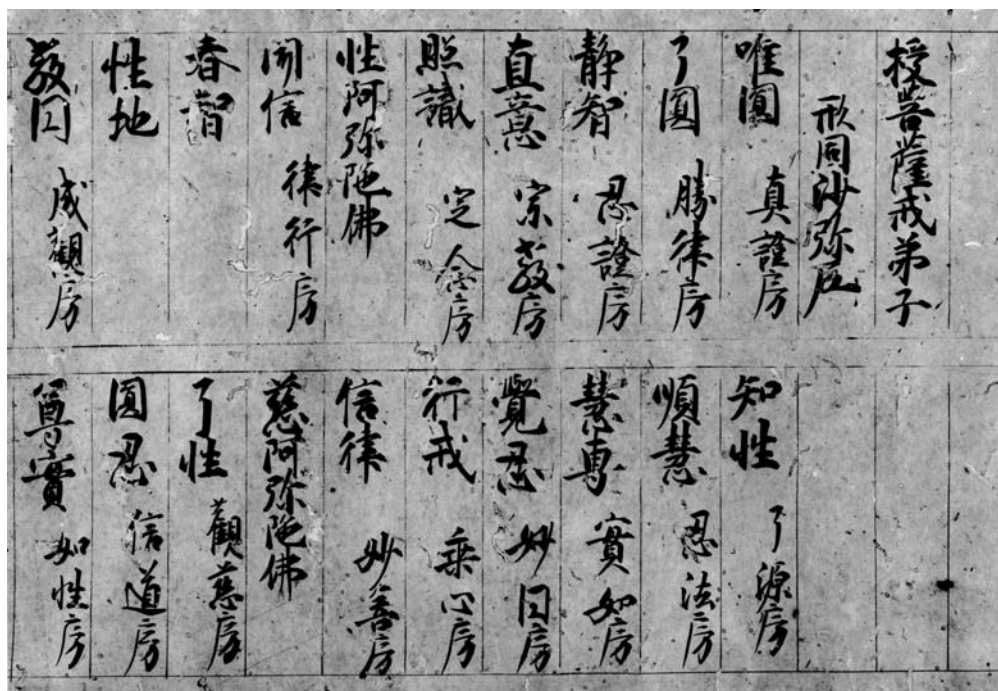 授菩薩戒弟子
形同沙弥尼
唯圓 真證房
了圓 勝律房
静智 忍證房
直意 宗教房
照識 定念房
性阿弥陀佛
聞信 律行房
春智
性地
教因 成觀房
知性 了源房
順慧 忍法房
慧専 實如房
覺忍 妙因房
行戒 乗心房
信律 妙善房
慈阿弥陀佛
了性 觀慈房
圓忍 信道房
尊實 如性房